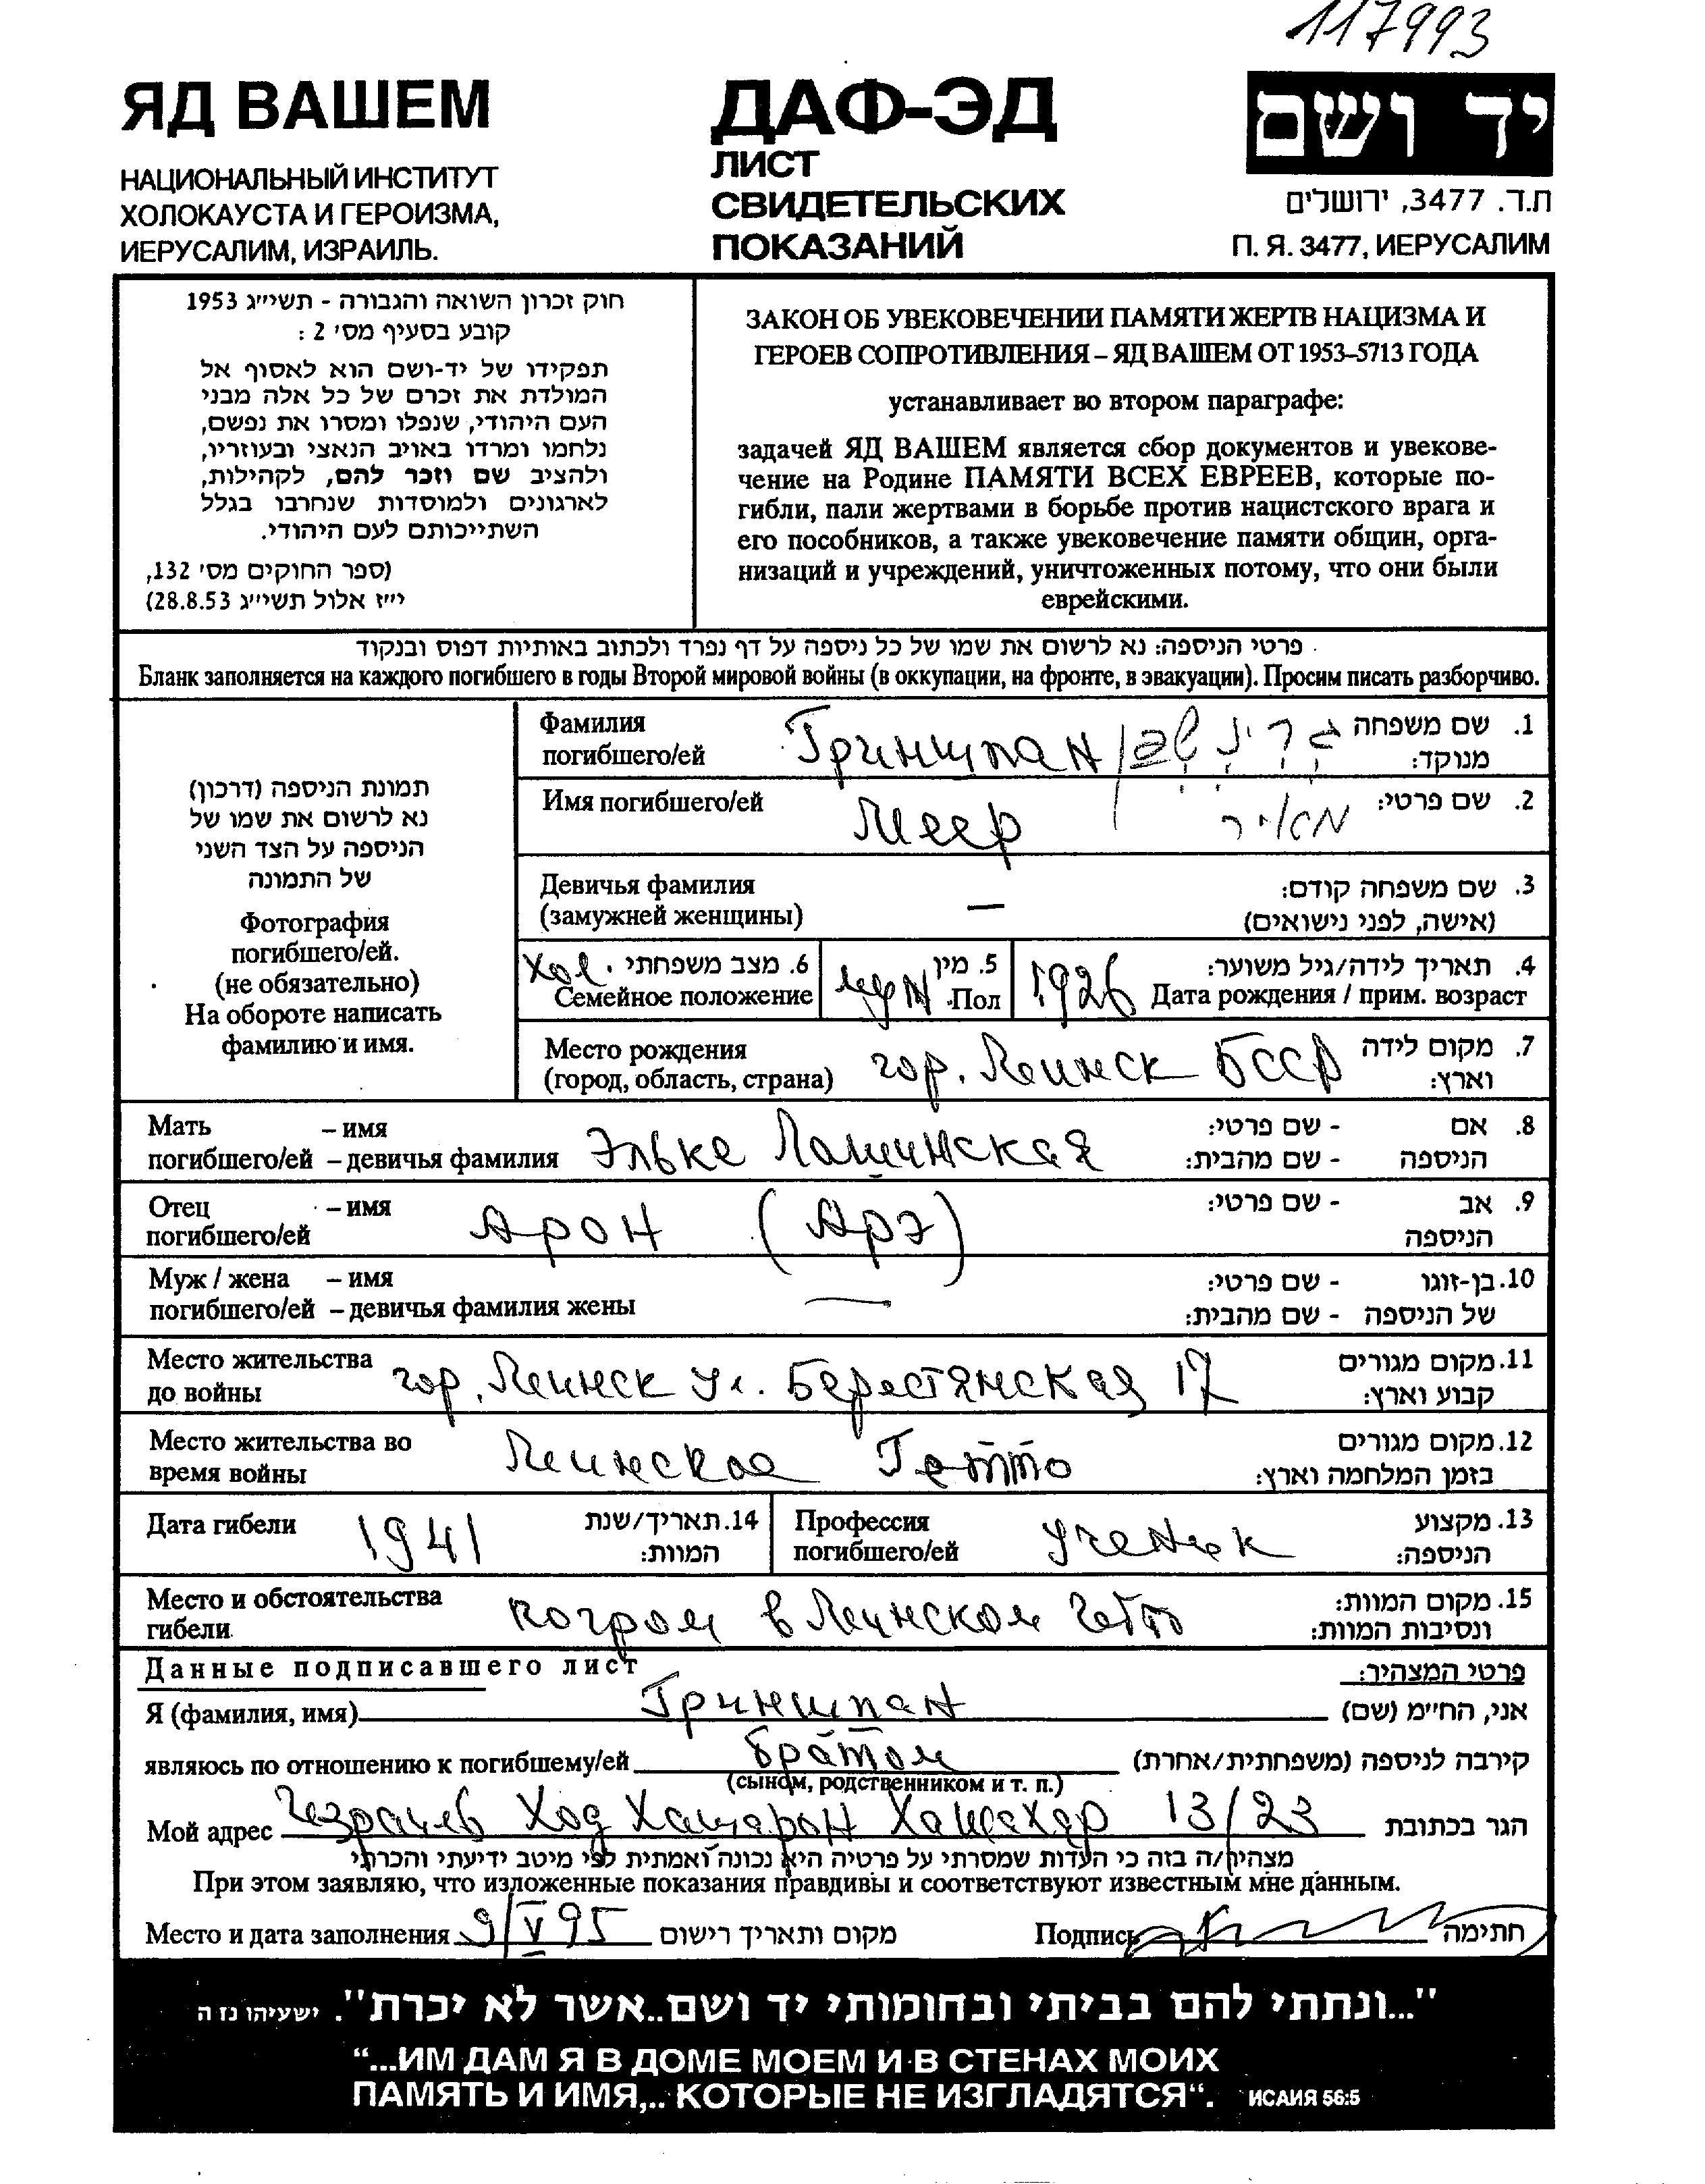 117993
ЯД ВАШЕМ
НАЦИОНАЛЬНЫЙ ИНСТИТУТ
ХОЛОКАУСТА И ГЕРОИЗМА,
ИЕРУСАЛИМ, ИЗРАИЛЬ.
ДАФ-ЭД
ЛИСТ
СВИДЕТЕЛЬСКИХ
ПОКАЗАНИЙ
יד ושם
ת.ד. 3477, ירושלים
П. Я. 3477, ИЕРУСАЛИМ
חוק זכרון השואה והגבורה - תשי״ג 1953
קובע בסעיף מס׳ 2 :
תפקידו של יד-ושם הוא לאסוף אל
המולדת את זכרם של כל אלה מבני
העם היהודי, שנפלו ומסרו את נפשם,
נלחמו ומרדו באויב הנאצי ובעוזריו,
ולהציב שם וזכר להם, לקהילות,
לארגונים ולמוסדות שנחרבו בגלל
השתייכותם לעם היהודי.
(ספר החוקים מס׳ 132,
י״ז אלול תשי״ג 28.8.53)
ЗАКОН ОБ УВЕКОВЕЧЕНИИ ПАМЯТИ ЖЕРТВ НАЦИЗМА И
ГЕРОЕВ СОПРОТИВЛЕНИЯ – ЯД ВАШЕМ ОТ 1953–5713 ГОДА
устанавливает во втором параграфе:
задачей ЯД ВАШЕМ является сбор документов и увекове-
чение на Родине ПАМЯТИ ВСЕХ ЕВРЕЕВ, которые по-
гибли, пали жертвами в борьбе против нацистского врага и
его пособников, а также увековечение памяти общин, орга-
низаций и учреждений, уничтоженных потому, что они были
еврейскими.
פרטי הניספה: נא לרשום את שמו של כל ניספה על דף נפרד ולכתוב באותיות דפוס ובנקוד
Бланк заполняется на каждого погибшего в годы Второй мировой войны (в оккупации, на фронте, в эвакуации). Просим писать разборчиво.
תמונת הניספה (דרכון)
נא לרשום את שמו של
הניספה על הצד השני
של התמונה
Фотография
погибшего/ей.
(не обязательно)
На обороте написать
фамилию и имя.
Фамилия
погибшего/ей
Гриншпан גרינשפן
1. שם משפחה
מנוקד:
Имя погибшего/ей
Меер מאיר
2. שם פרטי:
Девичья фамилия
(замужней женщины)
—
3. שם משפחה קודם:
(אישה, לפני נישואים)
Хол. 6. מצב משפחתי
Семейное положение
муж 5. מין
Пол
1926
4. תאריך לידה/גיל משוער:
Дата рождения / прим. возраст
Место рождения
(город, область, страна)
гор. Минск БССР
7. מקום לידה
וארץ:
Мать – имя
погибшего/ей – девичья фамилия
Эльке Лошинская
8. אם - שם פרטי:
הניספה - שם מהבית:
Отец – имя
погибшего/ей
Арон (Арэ)
9. אב - שם פרטי:
הניספה
Муж / жена – имя
погибшего/ей – девичья фамилия жены
—
10. בן-זוגו - שם פרטי:
של הניספה - שם מהבית:
Место жительства
до войны
гор. Минск ул. Берестянская 17
11. מקום מגורים
קבוע וארץ:
Место жительства во
время войны
Минское Гетто
12. מקום מגורים
בזמן המלחמה וארץ:
Дата гибели
1941
14. תאריך/שנת
המוות:
Профессия
погибшего/ей
Ученик
13. מקצוע
הניספה:
Место и обстоятельства
гибели
погром в Минском гетто
15. מקום המוות:
ונסיבות המוות:
Данные подписавшего лист
פרטי המצהיר:
Я (фамилия, имя) Гриншпан אני, הח״מ (שם)
являюсь по отношению к погибшему/ей братом קירבה לניספה (משפחתית/אחרת)
(сыном, родственником и т. п.)
Мой адрес Ход Хашарон Хашахар 13/23 הגר בכתובת
מצהיר/ה בזה כי העדות שמסרתי על פרטיה היא נכונה ואמתית לפי מיטב ידיעתי והכרתי
При этом заявляю, что изложенные показания правдивы и соответствуют известным мне данным.
Место и дата заполнения 9/V 95 מקום ותאריך רישום
Подпись חתימה
"...ונתתי להם בביתי ובחומותי יד ושם..אשר לא יכרת". ישעיהו נז ה
“...ИМ ДАМ Я В ДОМЕ МОЕМ И В СТЕНАХ МОИХ
ПАМЯТЬ И ИМЯ,.. КОТОРЫЕ НЕ ИЗГЛАДЯТСЯ“. ИСАИЯ 56:5